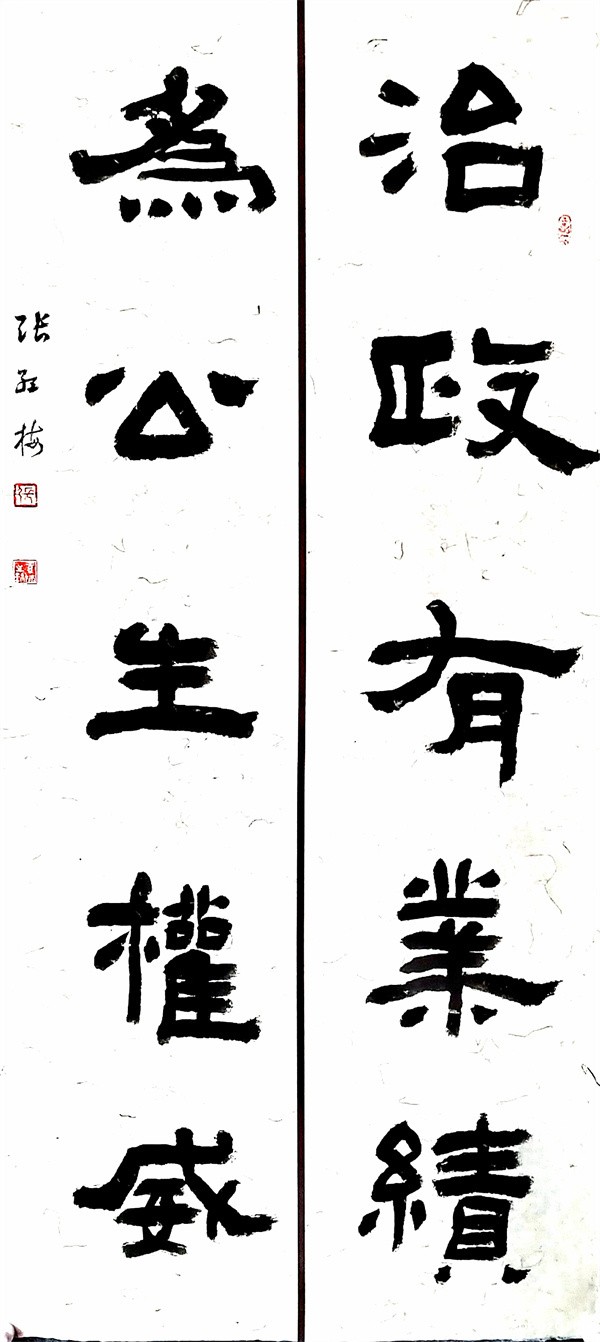 治政有業績
為公生權威
张红梅
張